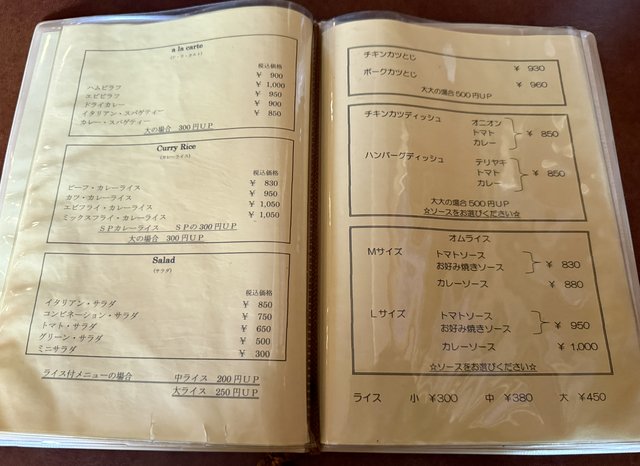 a la carte
(ア・ラ・カルト)
税込価格
ハムピラフ ¥ 900
エビピラフ ¥ 1,000
ドライカレー ¥ 950
イタリアン・スパゲティー ¥ 900
カレー・スパゲティー ¥ 850
大の場合 300円UP
Curry Rice
(カレーライス)
税込価格
ビーフ・カレーライス ¥ 830
カツ・カレーライス ¥ 950
エビフライ・カレーライス ¥ 1,050
ミックスフライ・カレーライス ¥ 1,050
SPカレーライス SPの300円UP
大の場合 300円UP
Salad
(サラダ)
税込価格
イタリアン・サラダ ¥ 850
コンビネーション・サラダ ¥ 750
トマト・サラダ ¥ 650
グリーン・サラダ ¥ 500
ミニサラダ ¥ 300
ライス付メニューの場合 中ライス 200円UP
大ライス 250円UP
チキンカツとじ ¥ 930
ポークカツとじ ¥ 960
大大の場合500円UP
チキンカツディッシュ オニオン
トマト ¥ 850
カレー
ハンバーグディッシュ テリヤキ
トマト ¥ 850
カレー
大大の場合500円UP
☆ソースをお選びください☆
オムライス
Mサイズ トマトソース
お好み焼きソース ¥ 830
カレーソース ¥ 880
Lサイズ トマトソース
お好み焼きソース ¥ 950
カレーソース ¥ 1,000
☆ソースをお選びください☆
ライス 小 ¥300 中 ¥380 大 ¥450